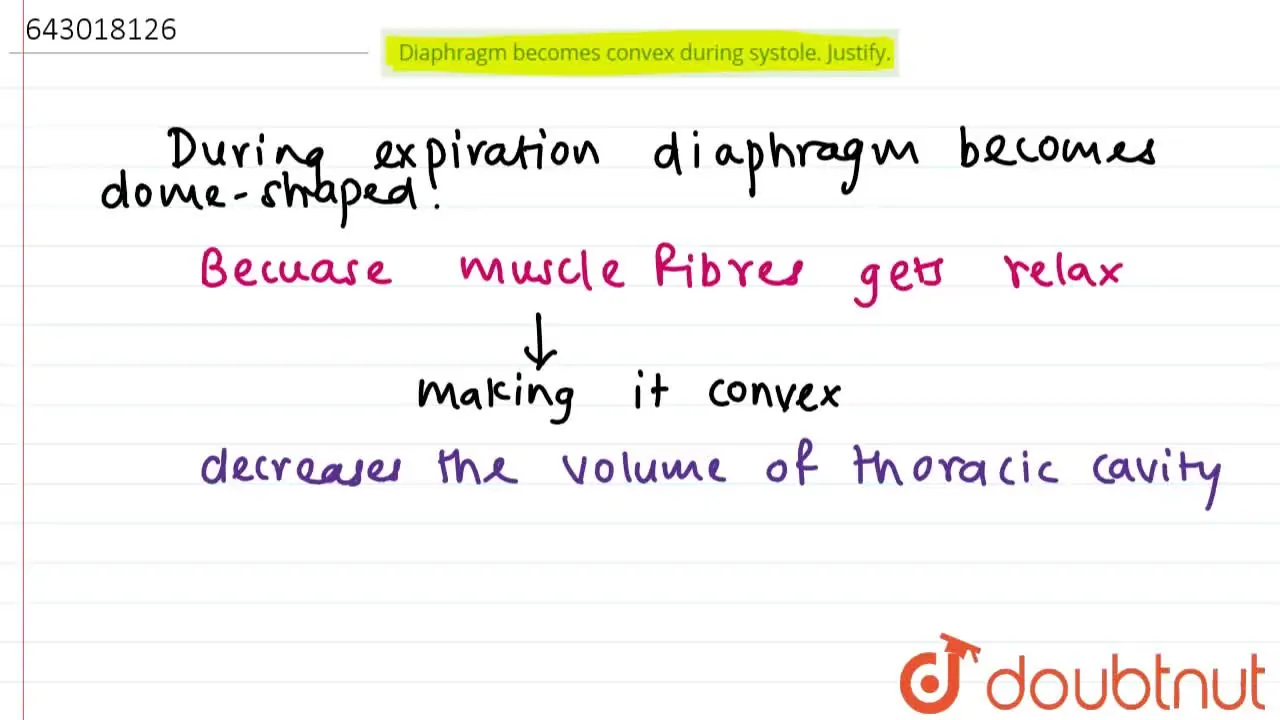 643018126
Diaphragm becomes convex during systole. Justify.
During expiration diaphragm becomes
dome-shaped.
Becuase muscle fibres gets relax
↓
making it convex
decreases the volume of thoracic cavity
doubtnut